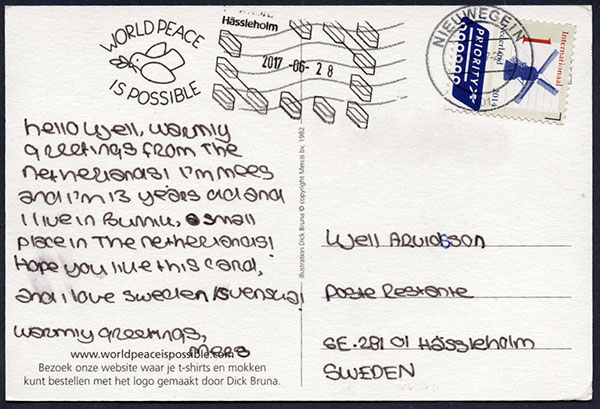 WORLD PEACE
IS POSSIBLE
Hässleholm
2017 -06- 2 8
NIEUWEGEIN
PRIORITY
Nederland
2014
International
1
hello Well, warmly
greetings from the
netherlands! I'm mees
and I'm 13 years old and
I live in Bunnik, a small
place in The netherlands!
Hope you like this card,
and I love sweden (svenska!
warmly greetings,
mees
www.worldpeaceispossible.com
Bezoek onze website waar je t-shirts en mokken
kunt bestellen met het logo gemaakt door Dick Bruna.
illustration Dick Bruna © copyright Mercis bv, 1982
Well Arvidsson
Poste Restante
SE-281 01 Hässleholm
SWEDEN